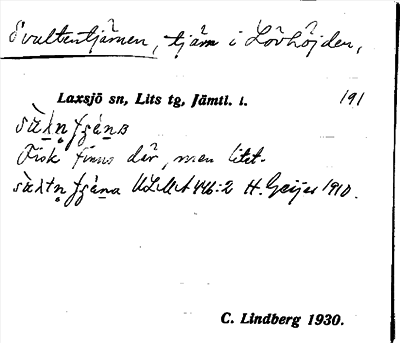 Svultentjärnen, tjärn i Lövhöjden,
Laxsjö sn, Lits tg, Jämtl. l. 191
Fisk finns där, men litet.
ULMA 446:2 H. Geijer 1910.
C. Lindberg 1930.